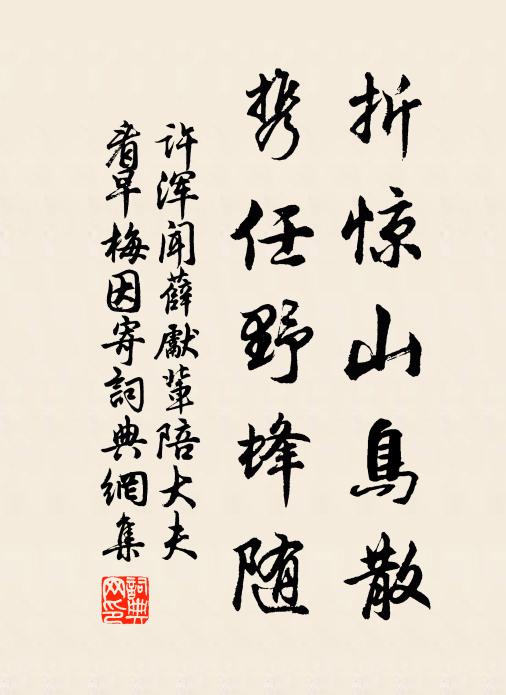 折惊山鳥散
携任野蜂随
许浑闻薛獻輩陪大夫
看早梅因寄詞典網集